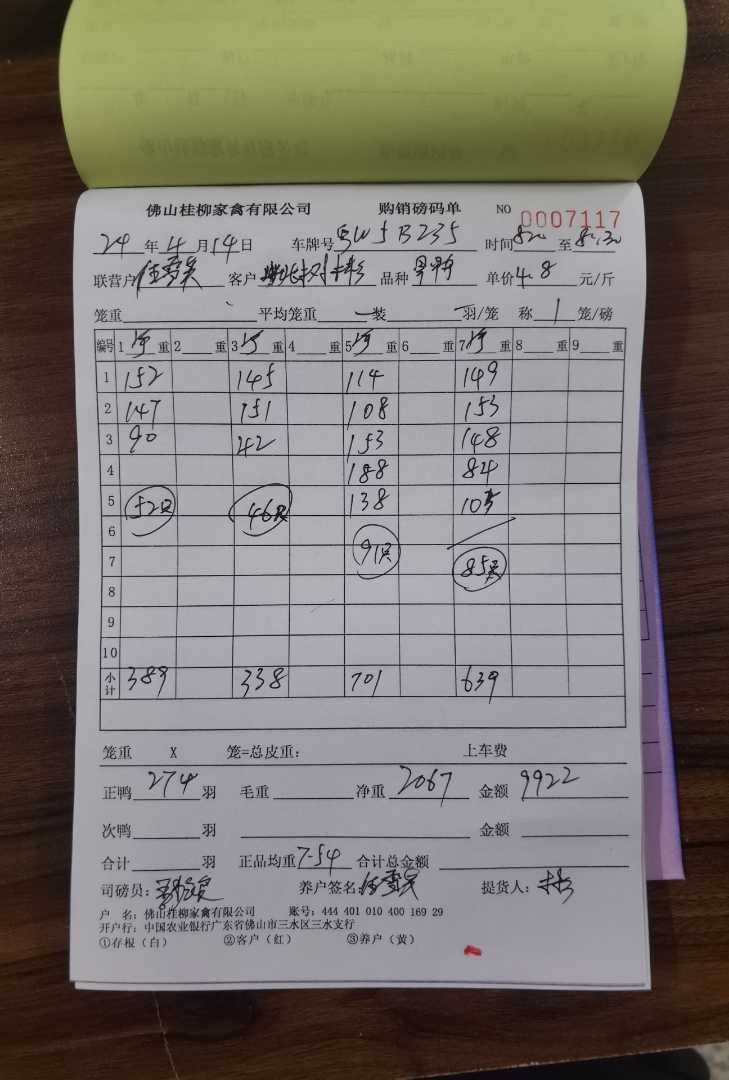 佛山桂柳家禽有限公司 购销磅码单 NO 0007117
24 年 4 月 14 日 车牌号 5B235 时间 至
联营户 客户 品种 单价 4.8 元/斤
笼重 平均笼重 一装 羽/笼 称 1 笼/磅
编号 1 重 2 重 3 重 4 重 5 重 6 重 7 重 8 重 9 重
1 152 145 114 149
2 147 151 108 153
3 90 42 153 148
4 188 84
5 52只 46只 138 105
6
7 91只 85只
8
9
10
小计 389 338 701 639
笼重 X 笼=总皮重: 上车费
正鸭 274 羽 毛重 净重 2067 金额 9922
次鸭 羽 金额
合计 羽 正品均重 7.54 合计总金额
司磅员: 养户签名 提货人:
户 名: 佛山桂柳家禽有限公司 账号: 444 401 010 400 169 29
开户行: 中国农业银行广东省佛山市三水区三水支行
①存根(白) ②客户(红) ③养户(黄)